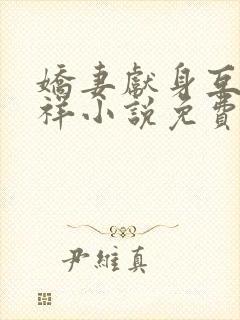 嬌妻獻身互
祥小說免費
尹維真